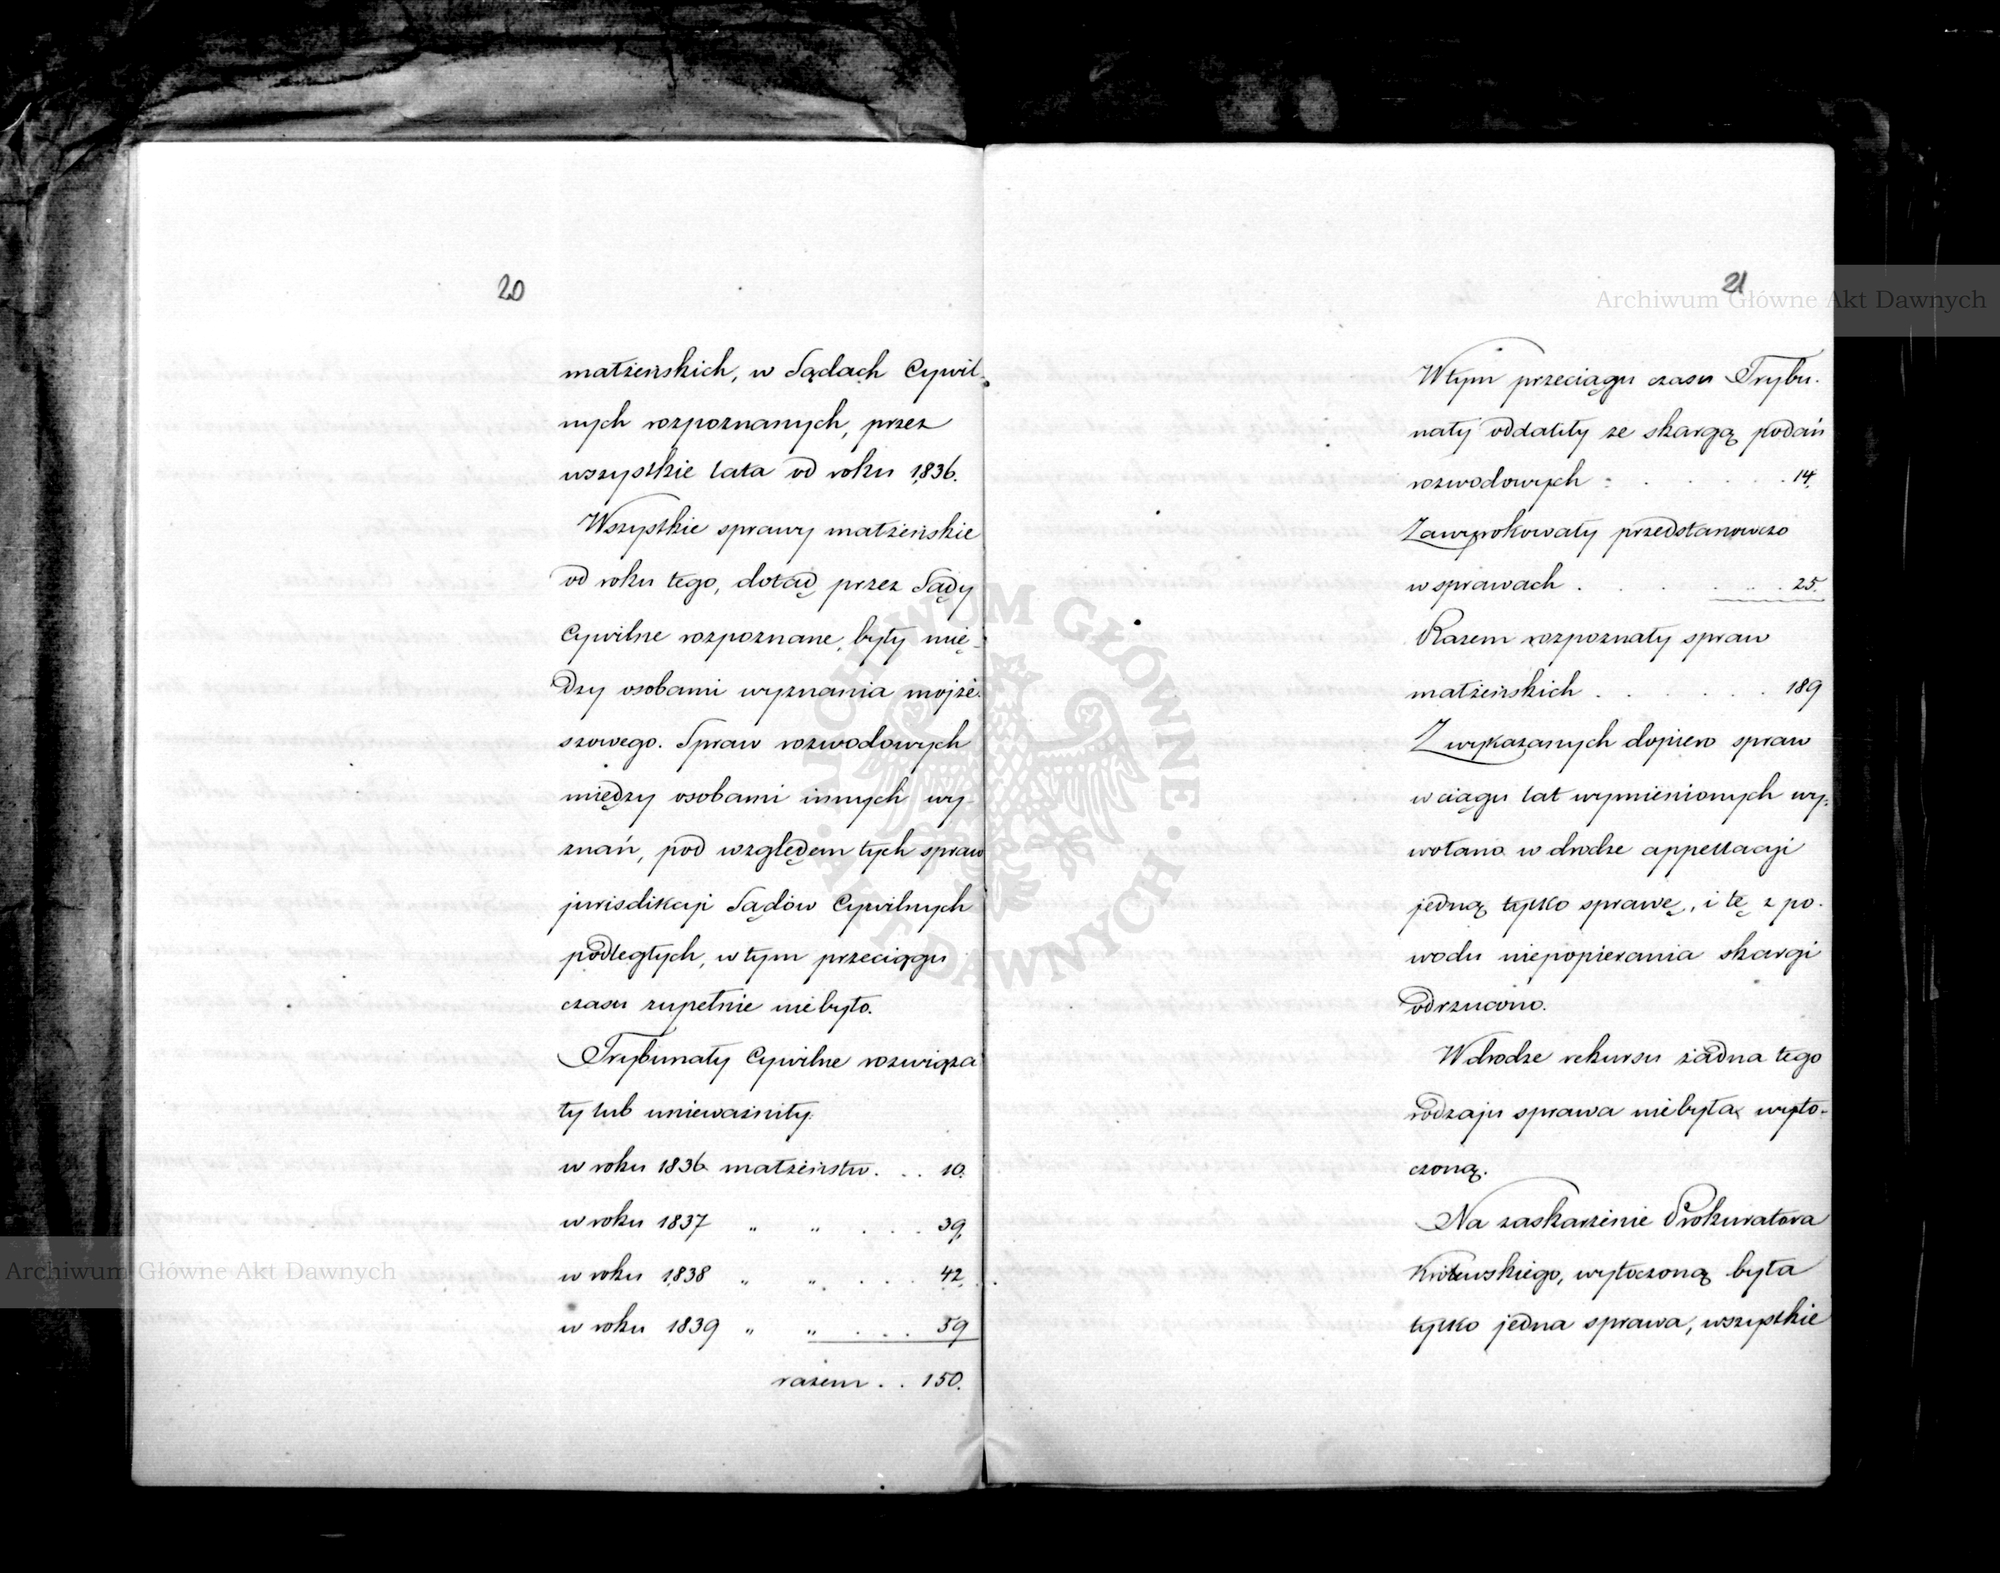 20
małżeńskich, w Sądach Cywil-
nych rozpoznanych, przez
wszystkie lata od roku 1836.
Wszystkie sprawy małżeńskie
od roku tego, dotąd przez Sądy
Cywilne rozpoznane, były mię-
dzy osobami wyznania mojże-
szowego. Spraw rozwodowych
między osobami innych wy-
znań, pod względem tych spraw
jurisdikcji Sądów Cywilnych
podległych, w tym przeciągu
czasu zupełnie niebyło.
Trybunały Cywilne rozwiąza
ły lub unieważniły:
w roku 1836 małżeństw . . . 10.
w roku 1837 „ „ . . . 39.
w roku 1838 „ „ . . . 42.
w roku 1839 „ „ . . . 59
razem . . 150.
21
W tym przeciągu czasu Trybu-
nały oddaliły ze skargą podań
rozwodowych . . . . . 14.
Zawyrokowały przedstanowczo
w sprawach . . . . . 25.
Razem rozpoznały spraw
małżeńskich . . . . . 189
Z wykazanych dopiero spraw
w ciągu lat wymienionych wy-
wołano w drodze appellacji
jedną tylko sprawę, i tę z po-
wodu niepopierania skargi
odrzucono.
W drodze rekursu żadna tego
rodzaju sprawa niebyła wyto-
czoną.
Na zaskarżenie Prokuratora
Królewskiego, wytoczoną była
tylko jedna sprawa, wszystkie
Archiwum Główne Akt Dawnych
Archiwum Główne Akt Dawnych
ARCHIWUM GŁÓWNE · AKT DAWNYCH ·